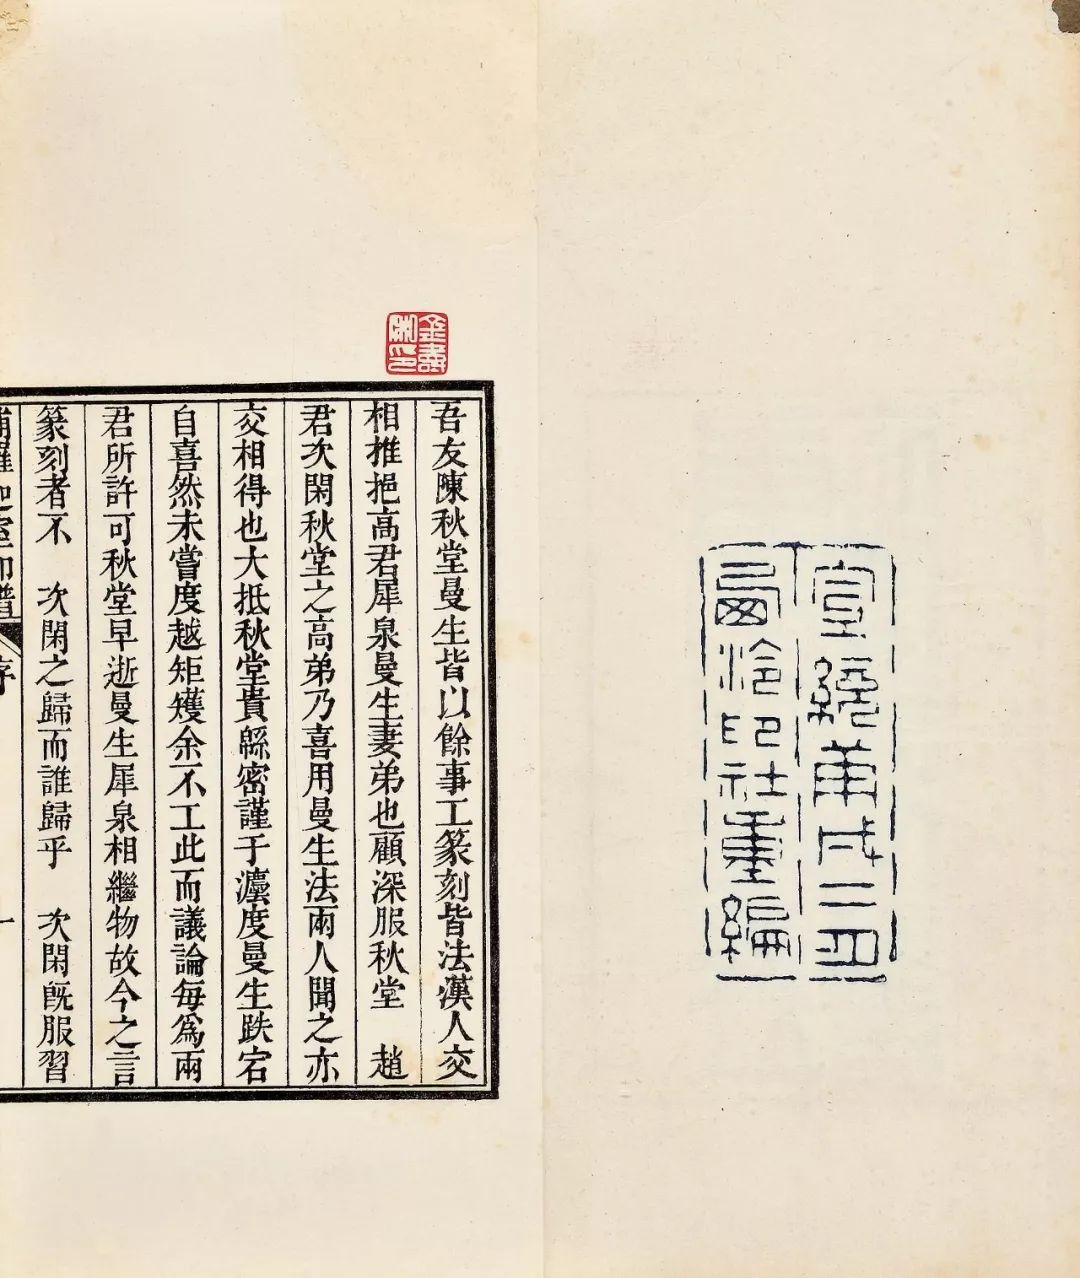 宣統庚戌二
西泠印社重編
吾友陳秋堂曼生皆以餘事工篆刻皆法漢人交
相推挹高君犀泉曼生妻弟也顧深服秋堂　趙
君次閑秋堂之高弟乃喜用曼生法兩人聞之亦
交相得也大抵秋堂貴緜密謹于瀍度曼生跌宕
自喜然未嘗度越矩矱余不工此而議論每爲兩
君所許可秋堂早逝曼生犀泉相繼物故今之言
篆刻者不　次閑之歸而誰歸乎　次閑既服習
補羅迦室印譜　序　一